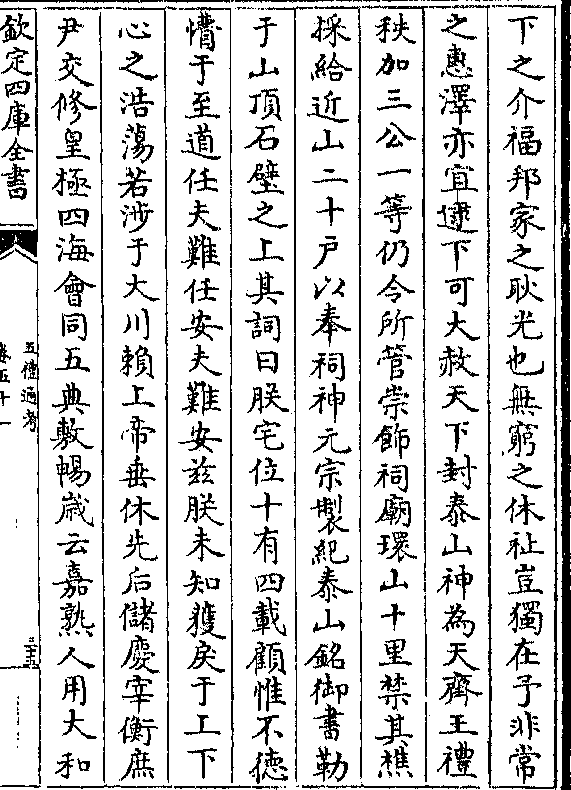 下之介福邦家之耿光也無窮之休祉豈獨在予非常
之惠澤亦宜逮下可大赦天下封泰山神為天齊王禮
秩加三公一等仍令所管崇飾祠廟環山十里禁其樵
採給近山二十戶以奉祠神元宗製紀泰山銘御書勒
于山頂石壁之上其詞曰朕宅位十有四載顧惟不德
懵于至道任夫難任安夫難安兹朕未知獲戾于上下
心之浩蕩若涉于大川賴上帝垂休先后儲慶宰衡庶
尹交修皇極四海會同五典敷暢歲云嘉熟人用大和
欽定四庫全書
五禮通考
卷五十一